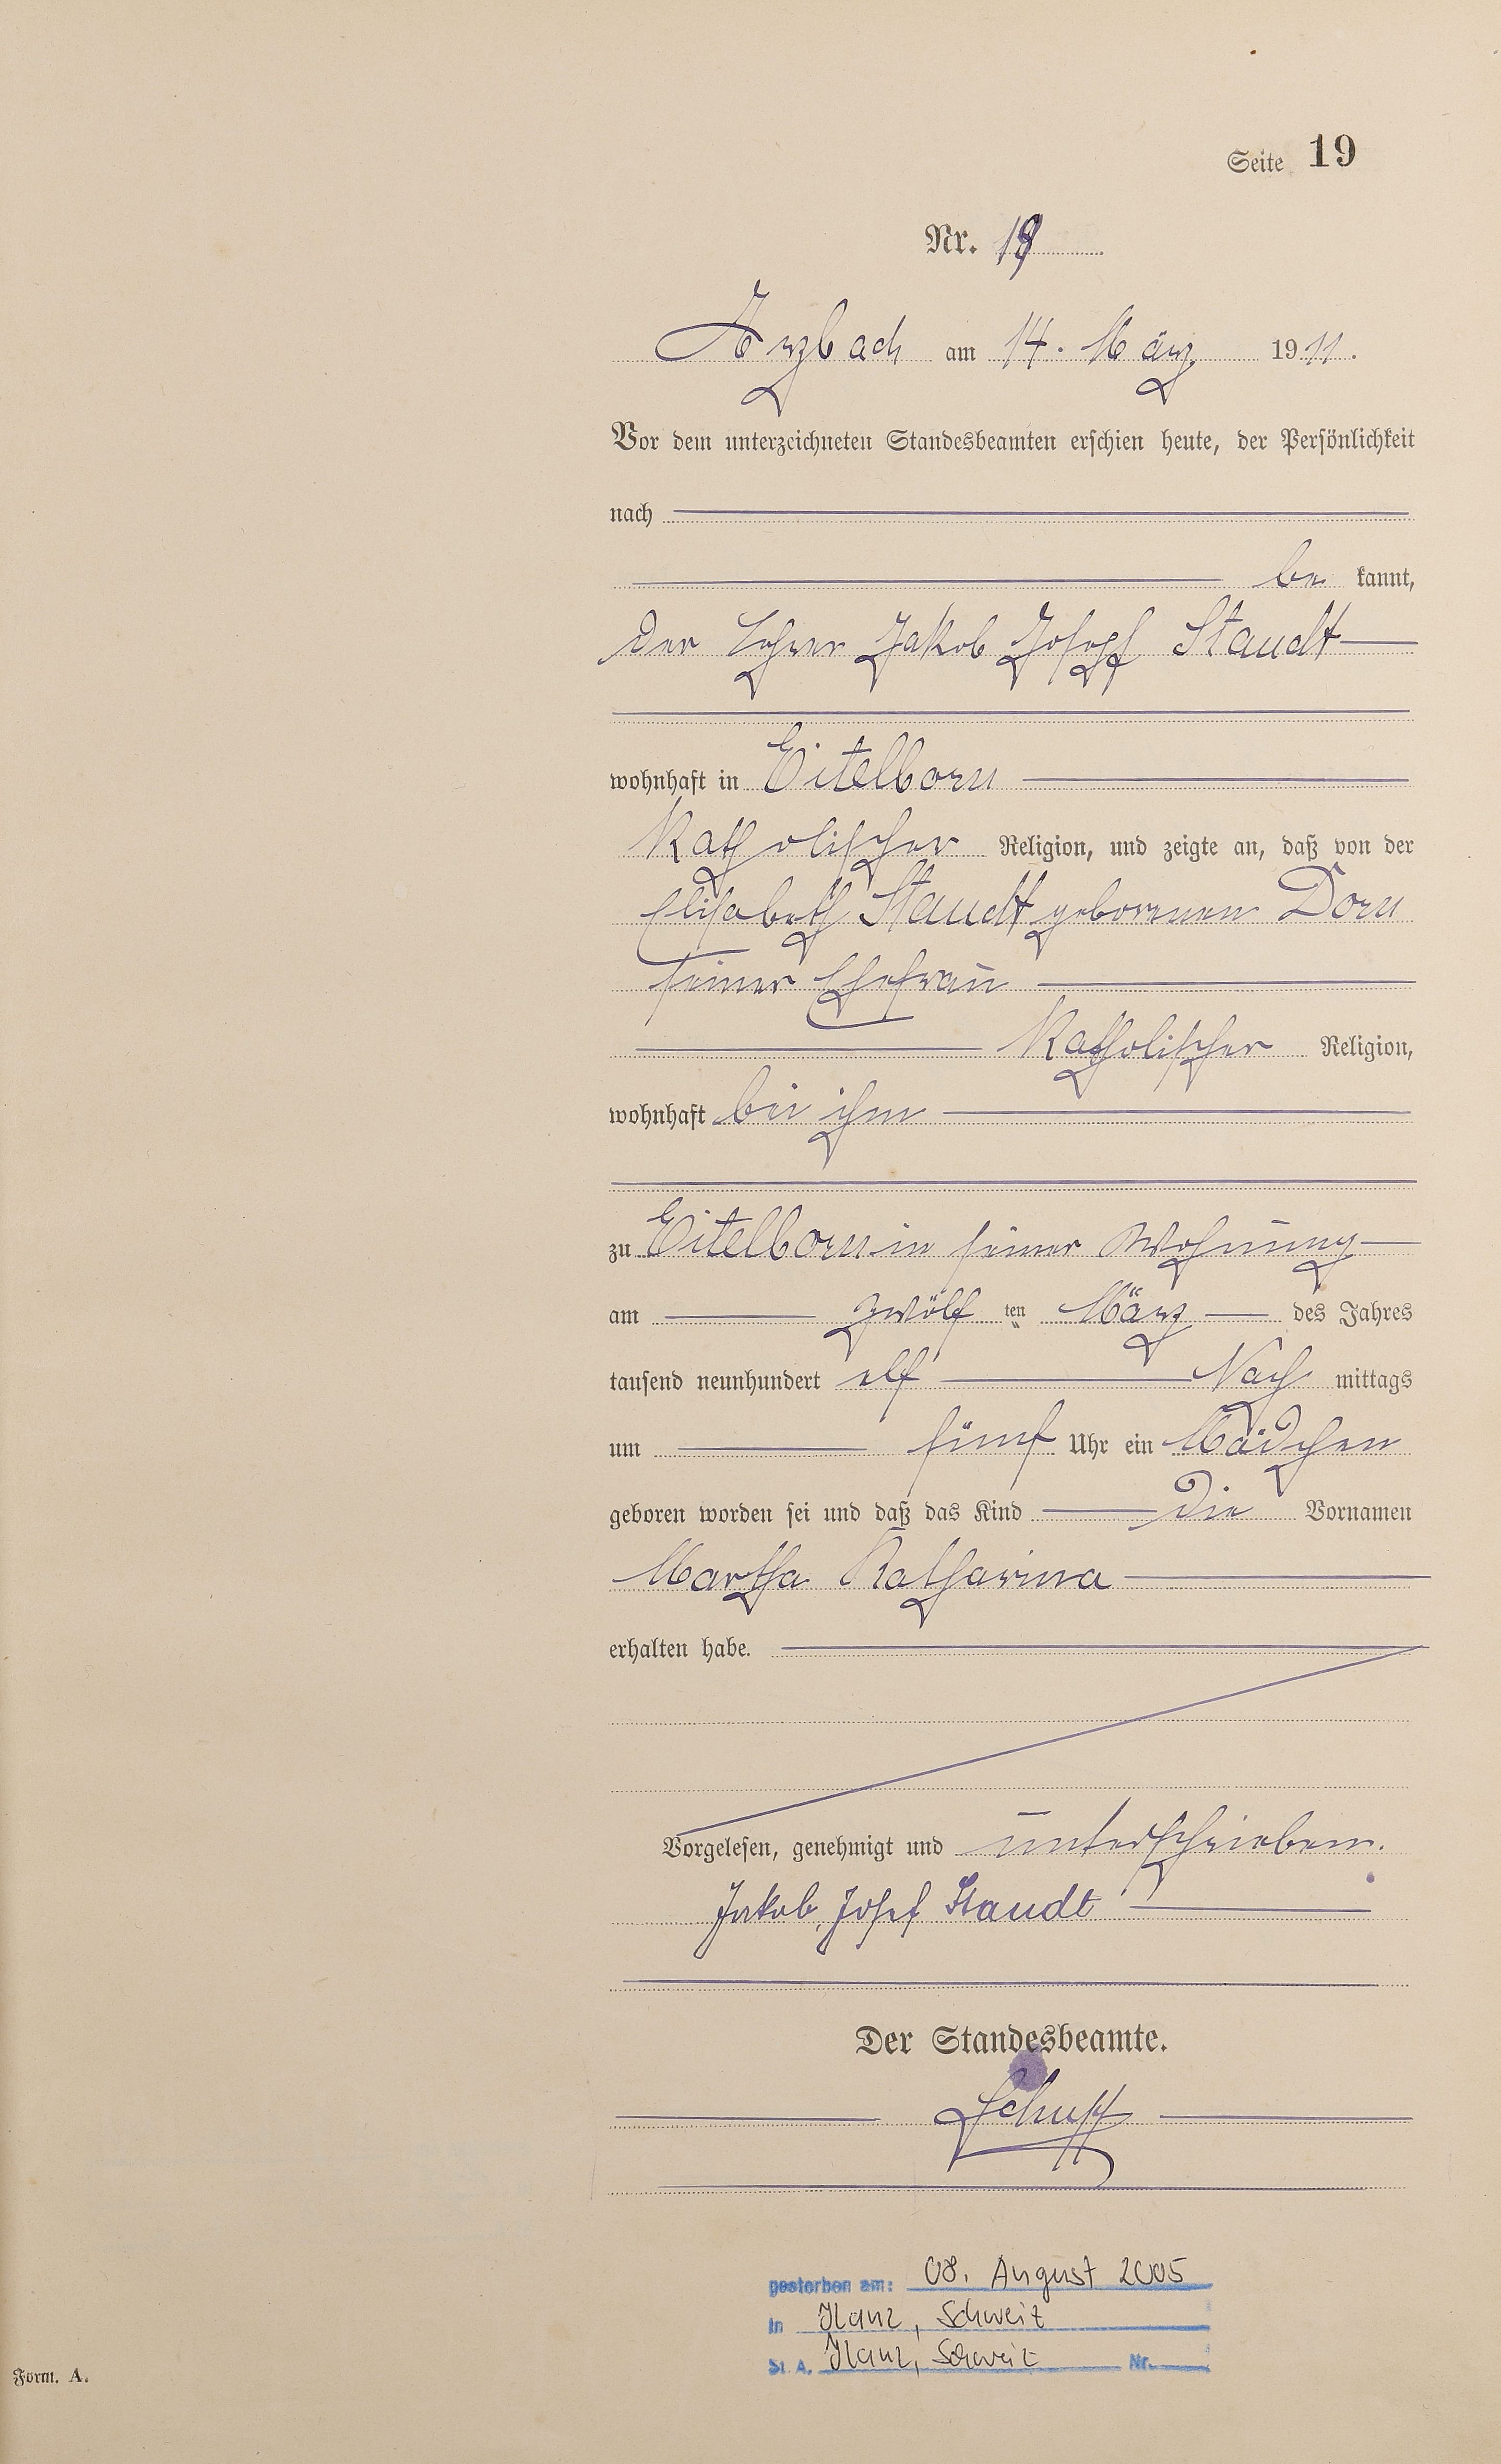 Seite 19
Nr. 19
Arzbach am 14. März 1911.
Vor dem unterzeichneten Standesbeamten erschien heute, der Persönlichkeit
nach
be kannt,
der Lehrer Jakob Joseph Staudt
wohnhaft in Eitelborn
Katholischer Religion, und zeigte an, daß von der
Elisabeth Staudt geborenen Dorn
seiner Ehefrau
Katholischer Religion,
wohnhaft bei ihm
zu Eitelborn in seiner Wohnung
am zwölf ten März des Jahres
tausend neunhundert elf Nach mittags
um fünf Uhr ein Mädchen
geboren worden sei und daß das Kind die Vornamen
Martha Katharina
erhalten habe.
Vorgelesen, genehmigt und unterschrieben.
Jakob Josef Staudt
Der Standesbeamte.
gestorben am: 08. August 2005
in Ilanz, Schweiz
St. A. Ilanz, Schweiz Nr.
Form. A.